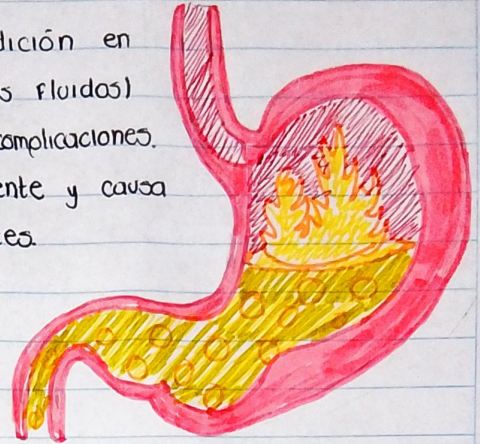 dición en
s Fluidos)
complicaciones.
ente y causa
es.